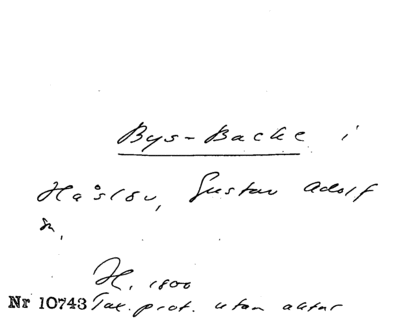 Bys-Backe i
Håslöv, Gustav Adolf
sn.
H. 1800
Nr 10743 Tax. prot. utan aktar